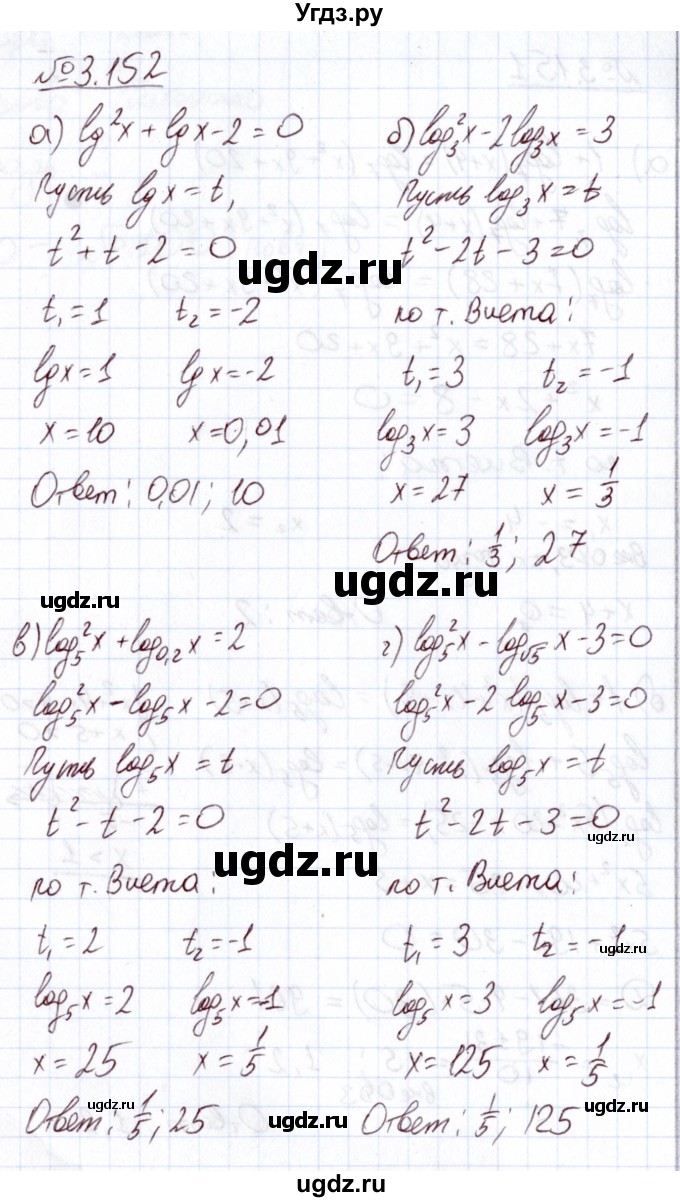 Угдз.ру
№3.152
а) lg²x + lgx - 2 = 0
Пусть lgx = t,
t² + t - 2 = 0
t₁ = 1 t₂ = -2
lgx = 1 lgx = -2
x = 10 x = 0,01
Ответ: 0,01; 10
б) log₃²x - 2log₃x = 3
Пусть log₃x = t
t² - 2t - 3 = 0
по т. Виета:
t₁ = 3 t₂ = -1
log₃x = 3 log₃x = -1
x = 27 x = 1/3
Ответ: 1/3; 27
в) log₅²x + log₀,₂x = 2
log₅²x - log₅x - 2 = 0
Пусть log₅x = t
t² - t - 2 = 0
по т. Виета:
t₁ = 2 t₂ = -1
log₅x = 2 log₅x = -1
x = 25 x = 1/5
Ответ: 1/5; 25
г) log₅²x - log_√5 x - 3 = 0
log₅²x - 2log₅x - 3 = 0
Пусть log₅x = t
t² - 2t - 3 = 0
по т. Виета:
t₁ = 3 t₂ = -1
log₅x = 3 log₅x = -1
x = 125 x = 1/5
Ответ: 1/5; 125
ugdz.ru
ugdz.ru
ugdz.ru
ugdz.ru
ugdz.ru
ugdz.ru
ugdz.ru
ugdz.ru
ugdz.ru